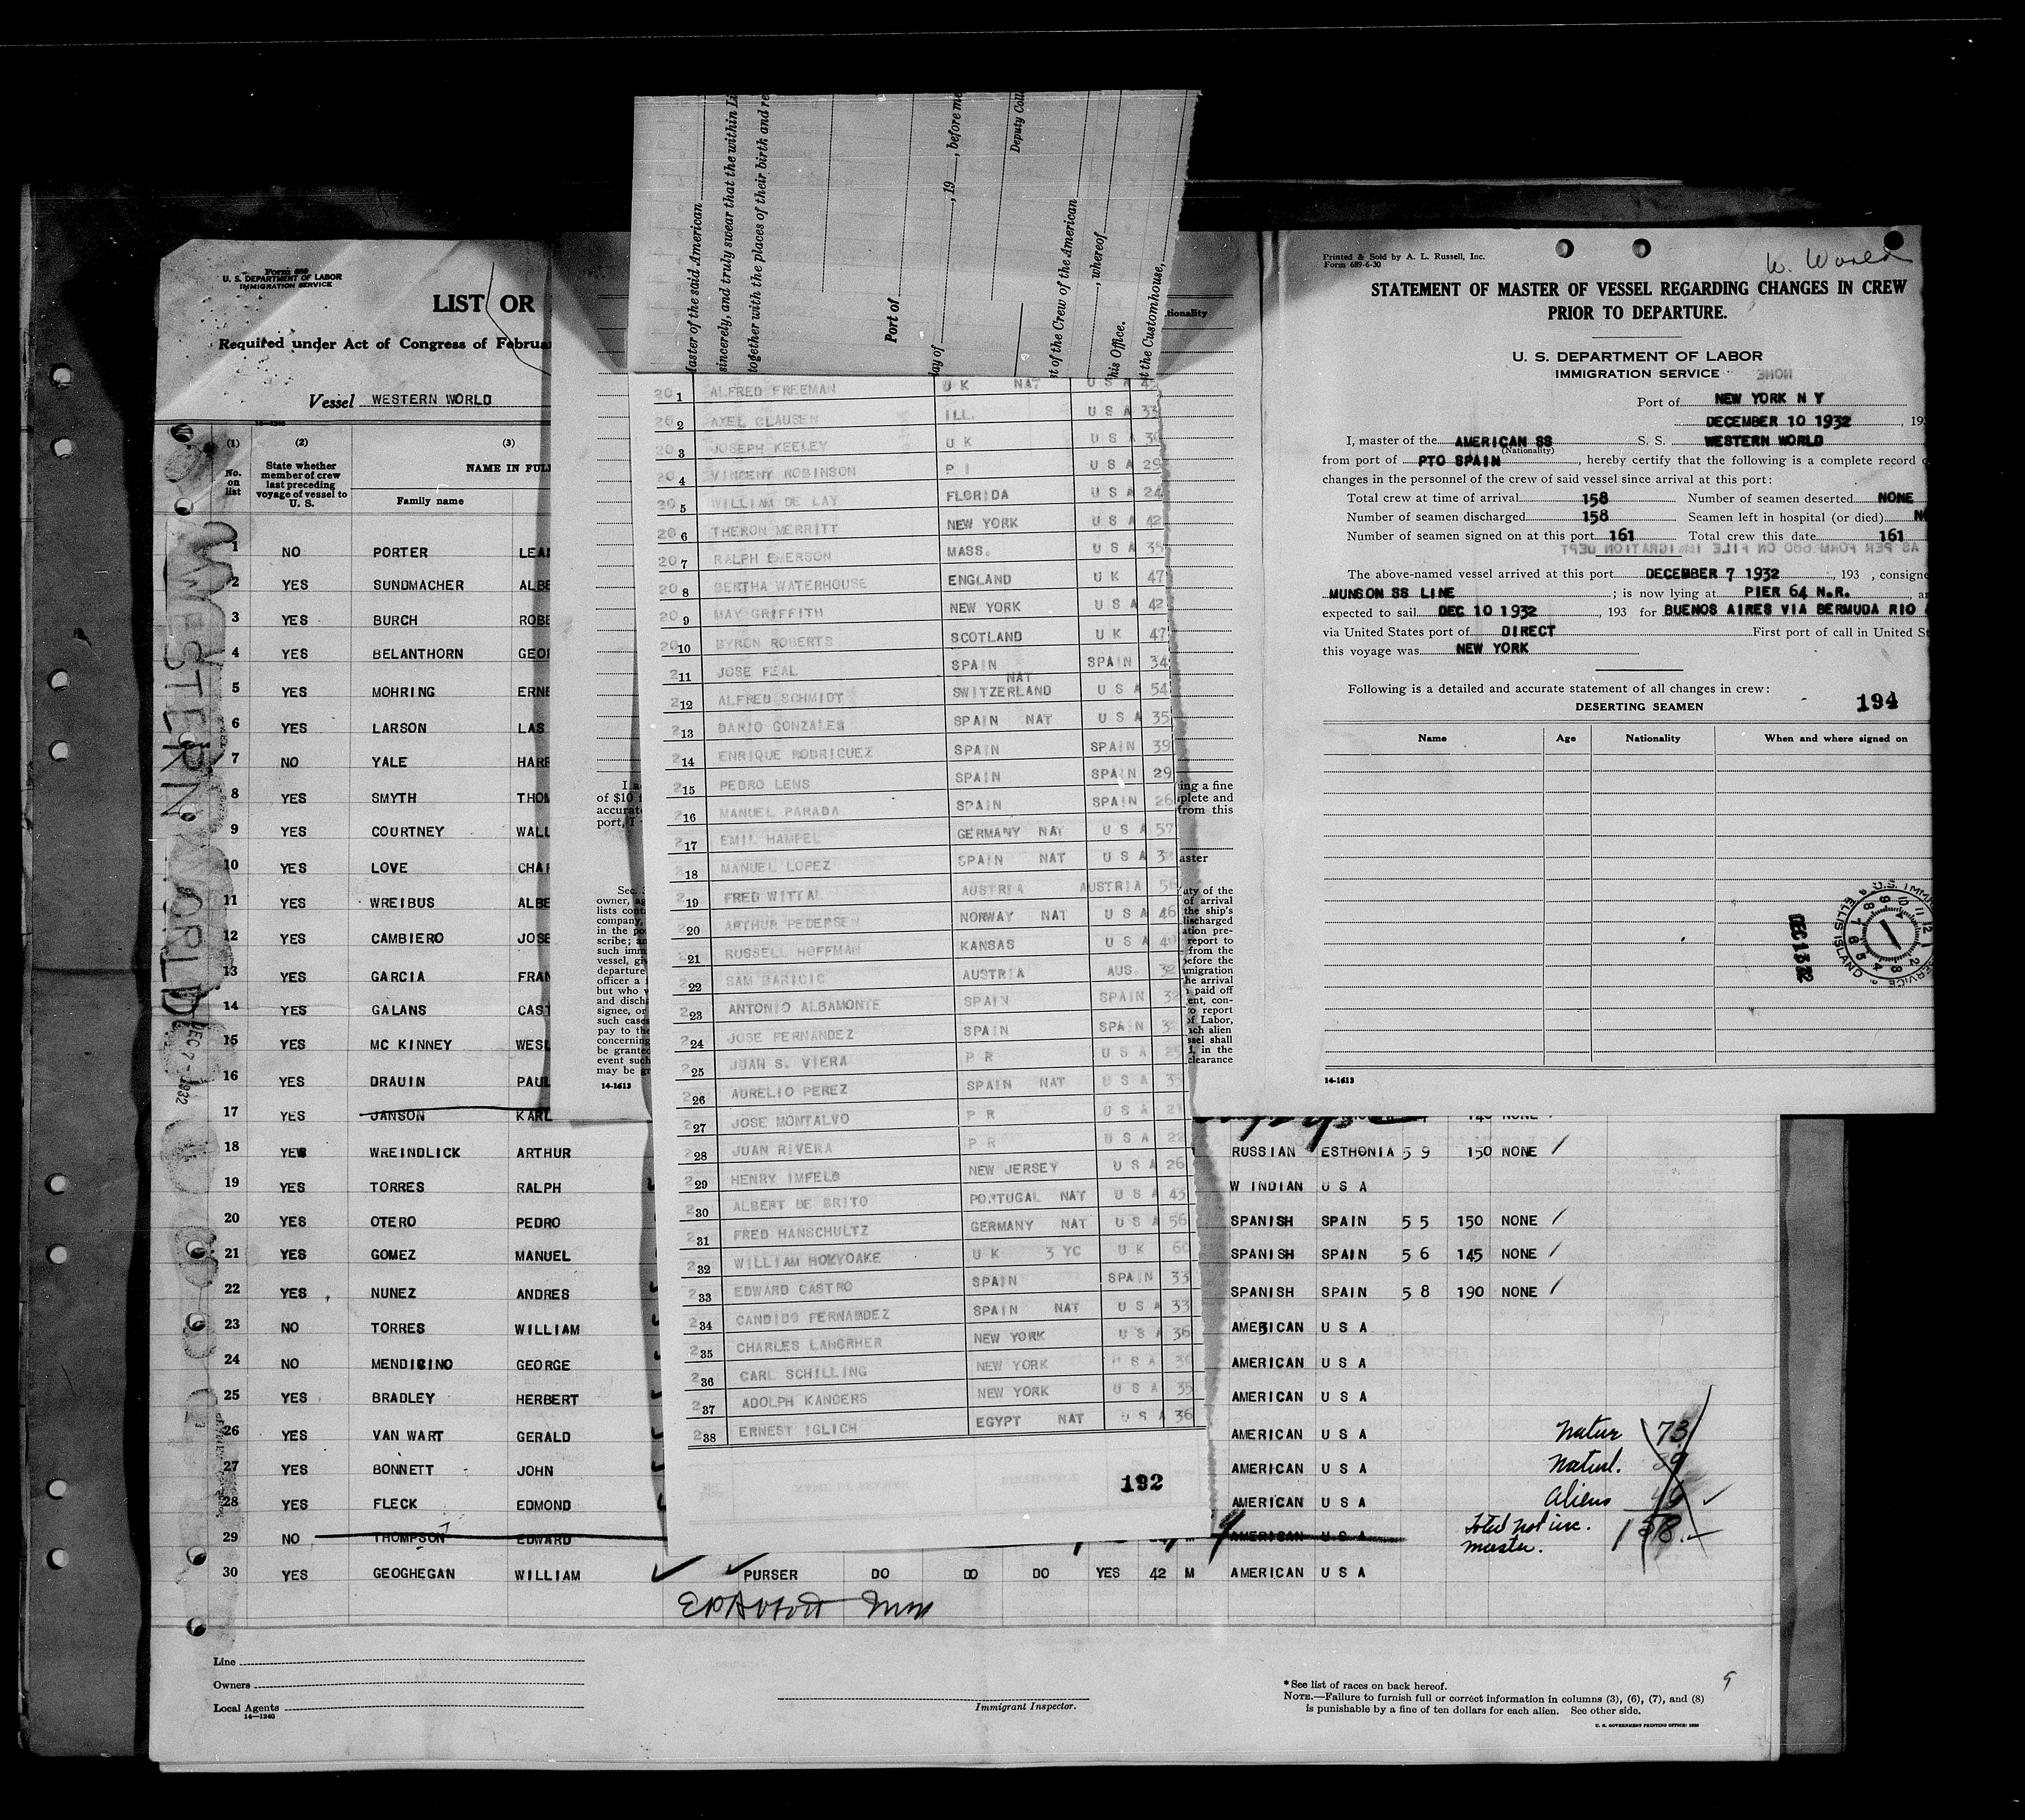 Form 689
U. S. DEPARTMENT OF LABOR
IMMIGRATION SERVICE
LIST OR
Required under Act of Congress of Februar
Vessel WESTERN WORLD
14-1240
(1) (2) (3)
No. on list
State whether member of crew last preceding voyage of vessel to U. S.
NAME IN FULL
Family name
1 NO PORTER LEA
2 YES SUNDMACHER ALBE
3 YES BURCH ROBE
4 YES BELANTHORN GEO
5 YES MOHRING ERNE
6 YES LARSON LAS
7 NO YALE HAR
8 YES SMYTH THO
9 YES COURTNEY WALL
10 YES LOVE CHA
11 YES WREIBUS ALBE
12 YES CAMBIERO JOSE
13 YES GARCIA FRAN
14 YES GALANS CAST
15 YES MC KINNEY WESL
16 YES DRAUIN PAUL
17 YES JANSON KARL
18 YES WREINDLICK ARTHUR RUSSIAN ESTHONIA 5 9 150 NONE
19 YES TORRES RALPH W INDIAN U S A
20 YES OTERO PEDRO SPANISH SPAIN 5 5 150 NONE
21 YES GOMEZ MANUEL SPANISH SPAIN 5 6 145 NONE
22 YES NUNEZ ANDRES SPANISH SPAIN 5 8 190 NONE
23 NO TORRES WILLIAM AMERICAN U S A
24 NO MENDICINO GEORGE AMERICAN U S A
25 YES BRADLEY HERBERT AMERICAN U S A
26 YES VAN WART GERALD AMERICAN U S A
27 YES BONNETT JOHN AMERICAN U S A
28 YES FLECK EDMOND AMERICAN U S A
29 NO THOMPSON EDWARD AMERICAN U S A
30 YES GEOGHEGAN WILLIAM PURSER DO DO DO YES 42 M AMERICAN U S A
WESTERN WORLD
DEC 7 - 1932
Natur 73
Naturl.
Aliens
Total not inc. master. 158
Line
Owners
Local Agents
14—1240
Immigrant Inspector.
* See list of races on back hereof.
NOTE.—Failure to furnish full or correct information in columns (3), (6), (7), and (8)
is punishable by a fine of ten dollars for each alien. See other side.
U. S. GOVERNMENT PRINTING OFFICE: 1930
9
Master of the said American
sincerely, and truly swear that the within Li
together with the places of their birth and re
Port of
day of , 19 , before me
Deputy Coll
st of the Crew of the American
, whereof
his Office.
t the Customhouse,
20 1 ALFRED FREEMAN U K NAT U S A 42
20 2 AXEL CLAUSEN ILL. U S A 33
20 3 JOSEPH KEELEY U K U S A
20 4 VINCENT ROBINSON P I U S A 29
20 5 WILLIAM DE LAY FLORIDA U S A 24
20 6 THERON MERRITT NEW YORK U S A 42
20 7 RALPH EMERSON MASS. U S A 35
20 8 BERTHA WATERHOUSE ENGLAND U K 47
20 9 MAY GRIFFITH NEW YORK U S A 42
20 10 BYRON ROBERTS SCOTLAND U K 47
2 11 JOSE FEAL SPAIN SPAIN 34
2 12 ALFRED SCHMIDT SWITZERLAND NAT U S A 54
2 13 DARIO GONZALES SPAIN NAT U S A 35
2 14 ENRIQUE RODRIGUEZ SPAIN SPAIN 39
2 15 PEDRO LENS SPAIN SPAIN 29
2 16 MANUEL PARADA SPAIN SPAIN 26
2 17 EMIL HAMPEL GERMANY NAT U S A 57
2 18 MANUEL LOPEZ SPAIN NAT U S A
2 19 FRED WITTAL AUSTRIA AUSTRIA 56
2 20 ARTHUR PEDERSEN NORWAY NAT U S A 46
2 21 RUSSELL HOFFMAN KANSAS U S A
2 22 SAM BARICIC AUSTRIA AUS. 32
2 23 ANTONIO ALBAMONTE SPAIN SPAIN
2 24 JOSE FERNANDEZ SPAIN SPAIN
2 25 JUAN S. VIERA P R U S A
2 26 AURELIO PEREZ SPAIN NAT U S A
2 27 JOSE MONTALVO P R U S A 21
2 28 JUAN RIVERA P R U S A 22
2 29 HENRY IMFELD NEW JERSEY U S A 26
2 30 ALBERT DE BRITO PORTUGAL NAT U S A 45
2 31 FRED HANSCHULTZ GERMANY NAT U S A 56
2 32 WILLIAM HOLYOAKE U K 3 YC U K 60
2 33 EDWARD CASTRO SPAIN SPAIN 33
2 34 CANDIDO FERNANDEZ SPAIN NAT U S A 33
2 35 CHARLES LANGRHER NEW YORK U S A 36
2 36 CARL SCHILLING NEW YORK U S A
2 37 ADOLPH KANDERS NEW YORK U S A 35
2 38 ERNEST IGLICH EGYPT NAT U S A 36
192
Printed & Sold by A. L. Russell, Inc.
Form 689-6-30
W. World
STATEMENT OF MASTER OF VESSEL REGARDING CHANGES IN CREW
PRIOR TO DEPARTURE.
U. S. DEPARTMENT OF LABOR
IMMIGRATION SERVICE
NONE
Port of NEW YORK N Y
DECEMBER 10 1932 , 19
I, master of the AMERICAN SS S. S. WESTERN WORLD
(Nationality)
from port of PTO SPAIN , hereby certify that the following is a complete record
changes in the personnel of the crew of said vessel since arrival at this port:
Total crew at time of arrival 158 Number of seamen deserted NONE
Number of seamen discharged 158 Seamen left in hospital (or died) NO
Number of seamen signed on at this port 161 Total crew this date 161
AS PER FORM 680 ON FILE IMMIGRATION DEPT
The above-named vessel arrived at this port DECEMBER 7 1932 , 193 , consigne
MUNSON SS LINE ; is now lying at PIER 64 N.R. , an
expected to sail DEC 10 1932 , 193 for BUENOS AIRES VIA BERMUDA RIO
via United States port of DIRECT First port of call in United St
this voyage was NEW YORK
Following is a detailed and accurate statement of all changes in crew:
DESERTING SEAMEN
194
Name Age Nationality When and where signed on
DEC 13 32
ELLIS ISLAND
14-1613
tionality
I a
of $10
accurat
port, I
ing a fine
plete and
from this
aster
Sec. 3
owner, ag
lists cont
company,
in the po
scribe; an
such imm
vessel, gi
departure
officer a
but who
and disch
signee, or
such cases
pay to the
concerning
be granted
event such
may be gr
14-1613
uty of the
of arrival
the ship's
discharged
ation pre-
report to
from the
before the
migration
he arrival
paid off
ent, con-
o report
of Labor,
ach alien
ssel shall
, in the
clearance